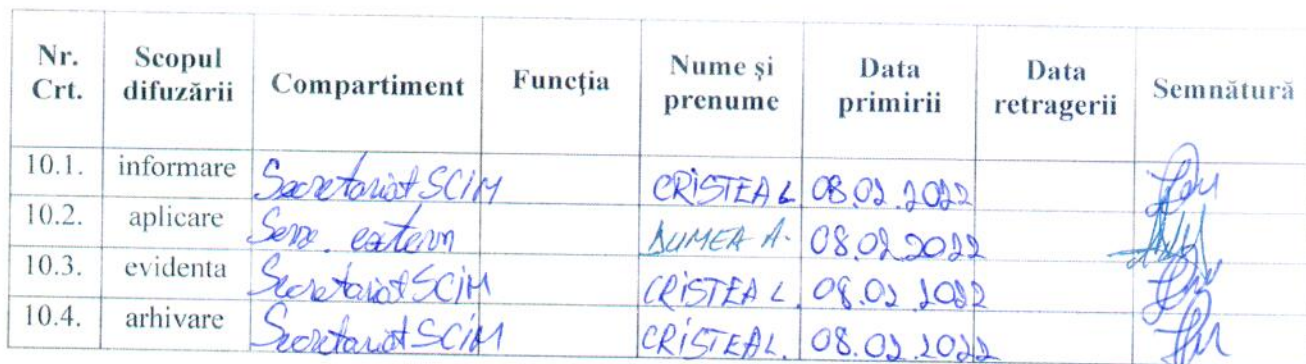 Nr. Crt. Scopul difuzării Compartiment Funcția Nume și prenume Data primirii Data retragerii Semnătură
10.1. informare Secretariat SCIM CRISTEA L. 08.02.2022
10.2. aplicare Serv. extern DUMEA A. 08.02.2022
10.3. evidenta Secretariat SCIM CRISTEA L. 08.02.2022
10.4. arhivare Secretariat SCIM CRISTEA L. 08.02.2022